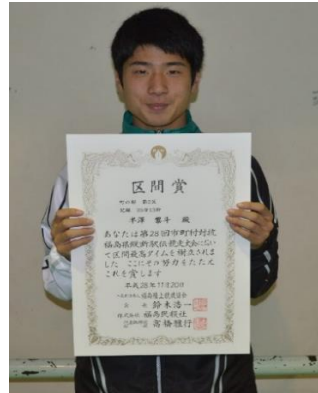 区間賞
町の部 第2区
半澤 黎斗 殿
あなたは第28回市町村対抗
福島県縦断駅伝競走大会におい
て区間最高タイムを樹立されま
した ここにその努力をたたえ
これを賞します
平成28年11月20日
会長 鈴木浩一
株式会社 福島民報社
代表取締役社長 高橋雅行